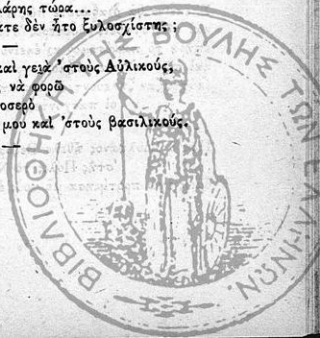 λάρης τώρα...
τε δὲν ἦτο ξυλοσχίστης ;
καὶ γειὰ 'στοὺς Αὐλικούς,
νὰ φορῶ
οσερὸ
μου καὶ 'στοὺς βασιλικούς.
ΒΙΒΛΙΟΘΗΚΗ ΤΗΣ ΒΟΥΛΗΣ ΤΩΝ ΕΛΛΗΝΩΝ